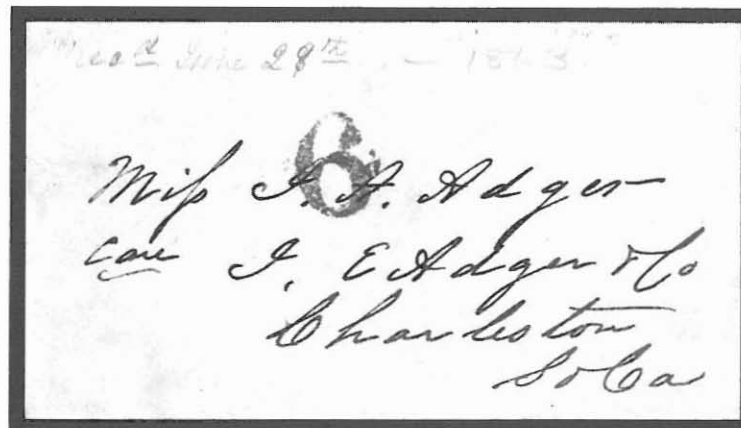 Recd June 28th — 1863
6
Miss J. A. Adger
care J. E Adger & Co
Charleston
So Ca